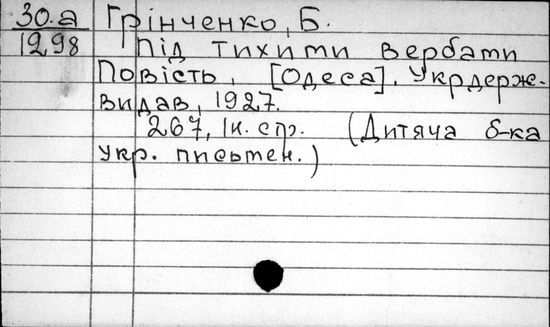 30.а
1298
Грінченко, Б.
Під тихими вербами
Повість, [Одеса]. Укрдерж-
видав, 1927.
267, Ін. стр. (Дитяча б-ка
укр. письмен.)